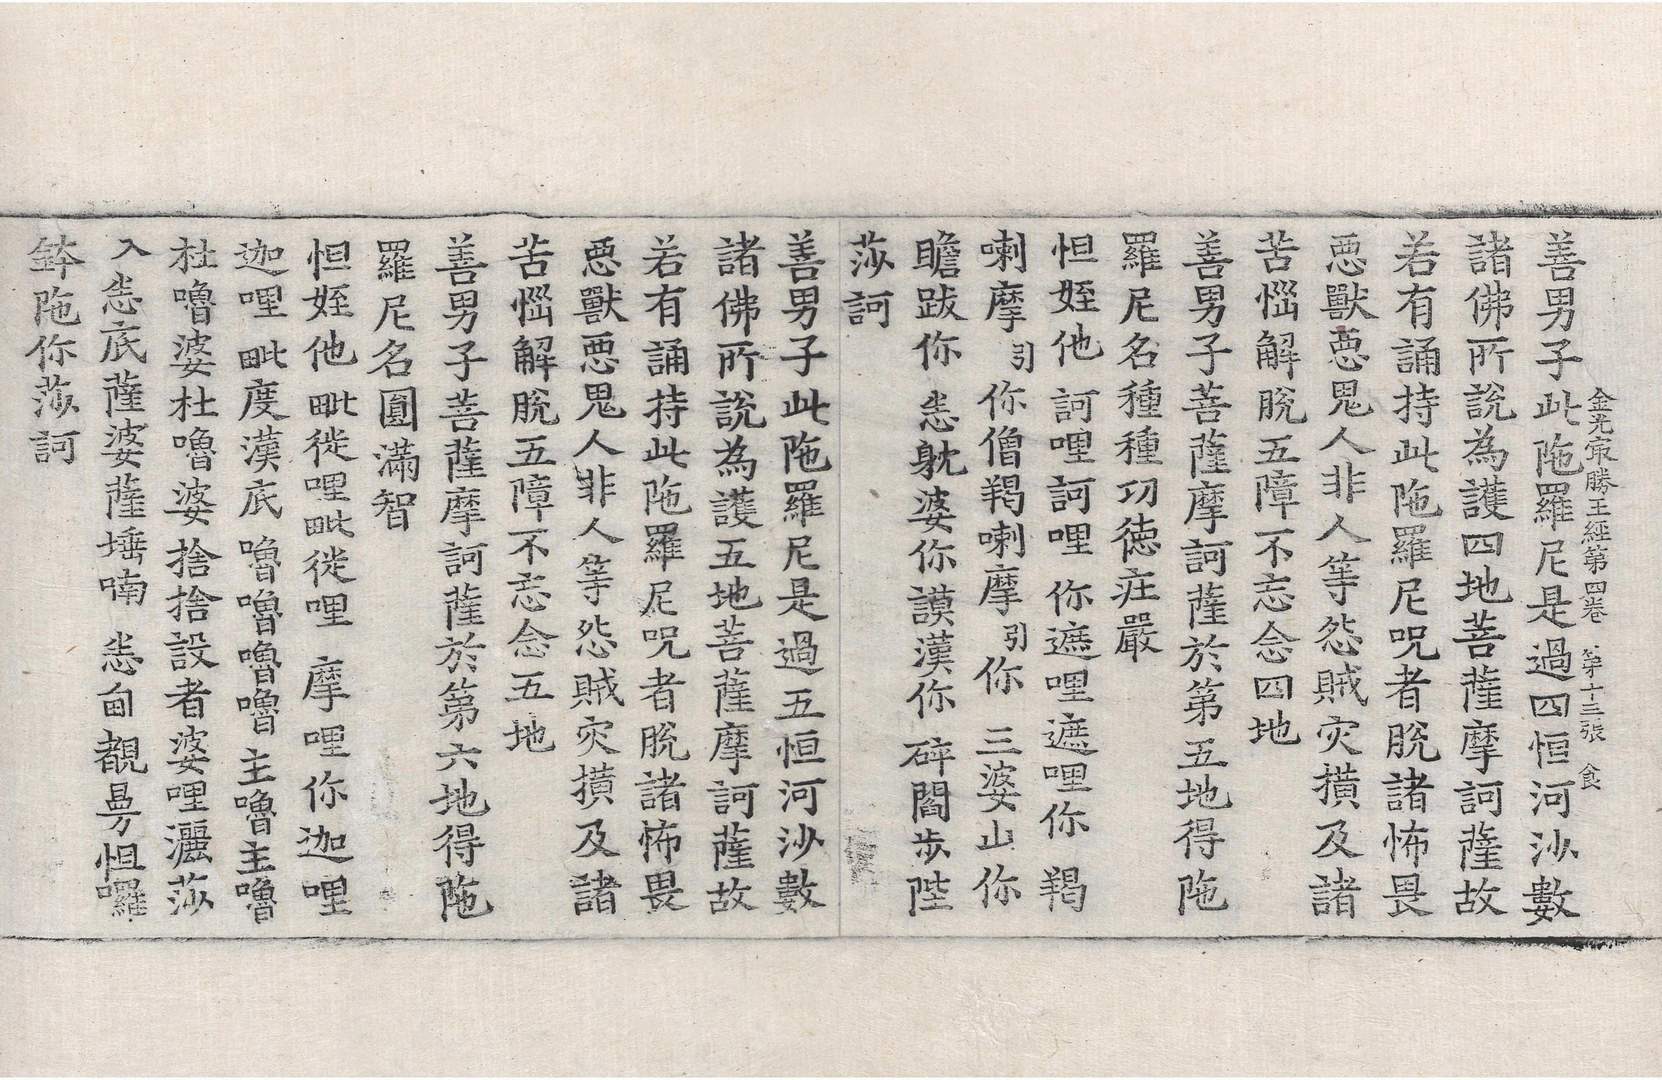 善男子此陁羅尼是過四恒河沙數
金光㝡勝王經第四卷 第十三張 食
諸佛所說為護四地菩薩摩訶薩故
若有誦持此陁羅尼呪者脫諸怖畏
惡獸惡鬼人非人等怨賊灾撗及諸
苦惱解脫五障不忘念四地
善男子菩薩摩訶薩於第五地得陁
羅尼名種種功德莊嚴
怛姪他 訶哩訶哩 你遮哩遮哩你 羯
喇摩引你僧羯喇摩引你 三婆山你
瞻跋你 悉躭婆你謨漢你 碎閻步陛
莎訶
善男子此陁羅尼是過五恒河沙數
諸佛所說為護五地菩薩摩訶薩故
若有誦持此陁羅尼呪者脫諸怖畏
惡獸惡鬼人非人等怨賊灾撗及諸
苦惱解脫五障不忘念五地
善男子菩薩摩訶薩於第六地得陁
羅尼名圓滿智
怛姪他 毗徙哩毗徙哩 摩哩你迦哩
迦哩 毗度漢底 嚕嚕嚕嚕 主嚕主嚕
杜嚕婆杜嚕婆 捨捨設者婆哩灑莎
入悉底薩婆薩埵喃 悉甸覩曼怛囉
鉢陁你莎訶